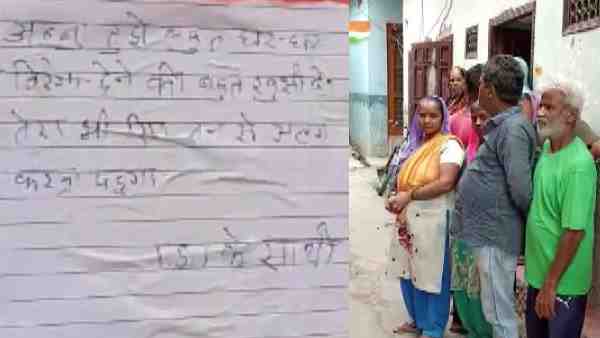 अन्नु तुझे बहुत घर-घर
तिरंगा देने की बहुत खुशी है
तेरा भी सिर तन से अलग
करना पड़ेगा
ISI के साथी